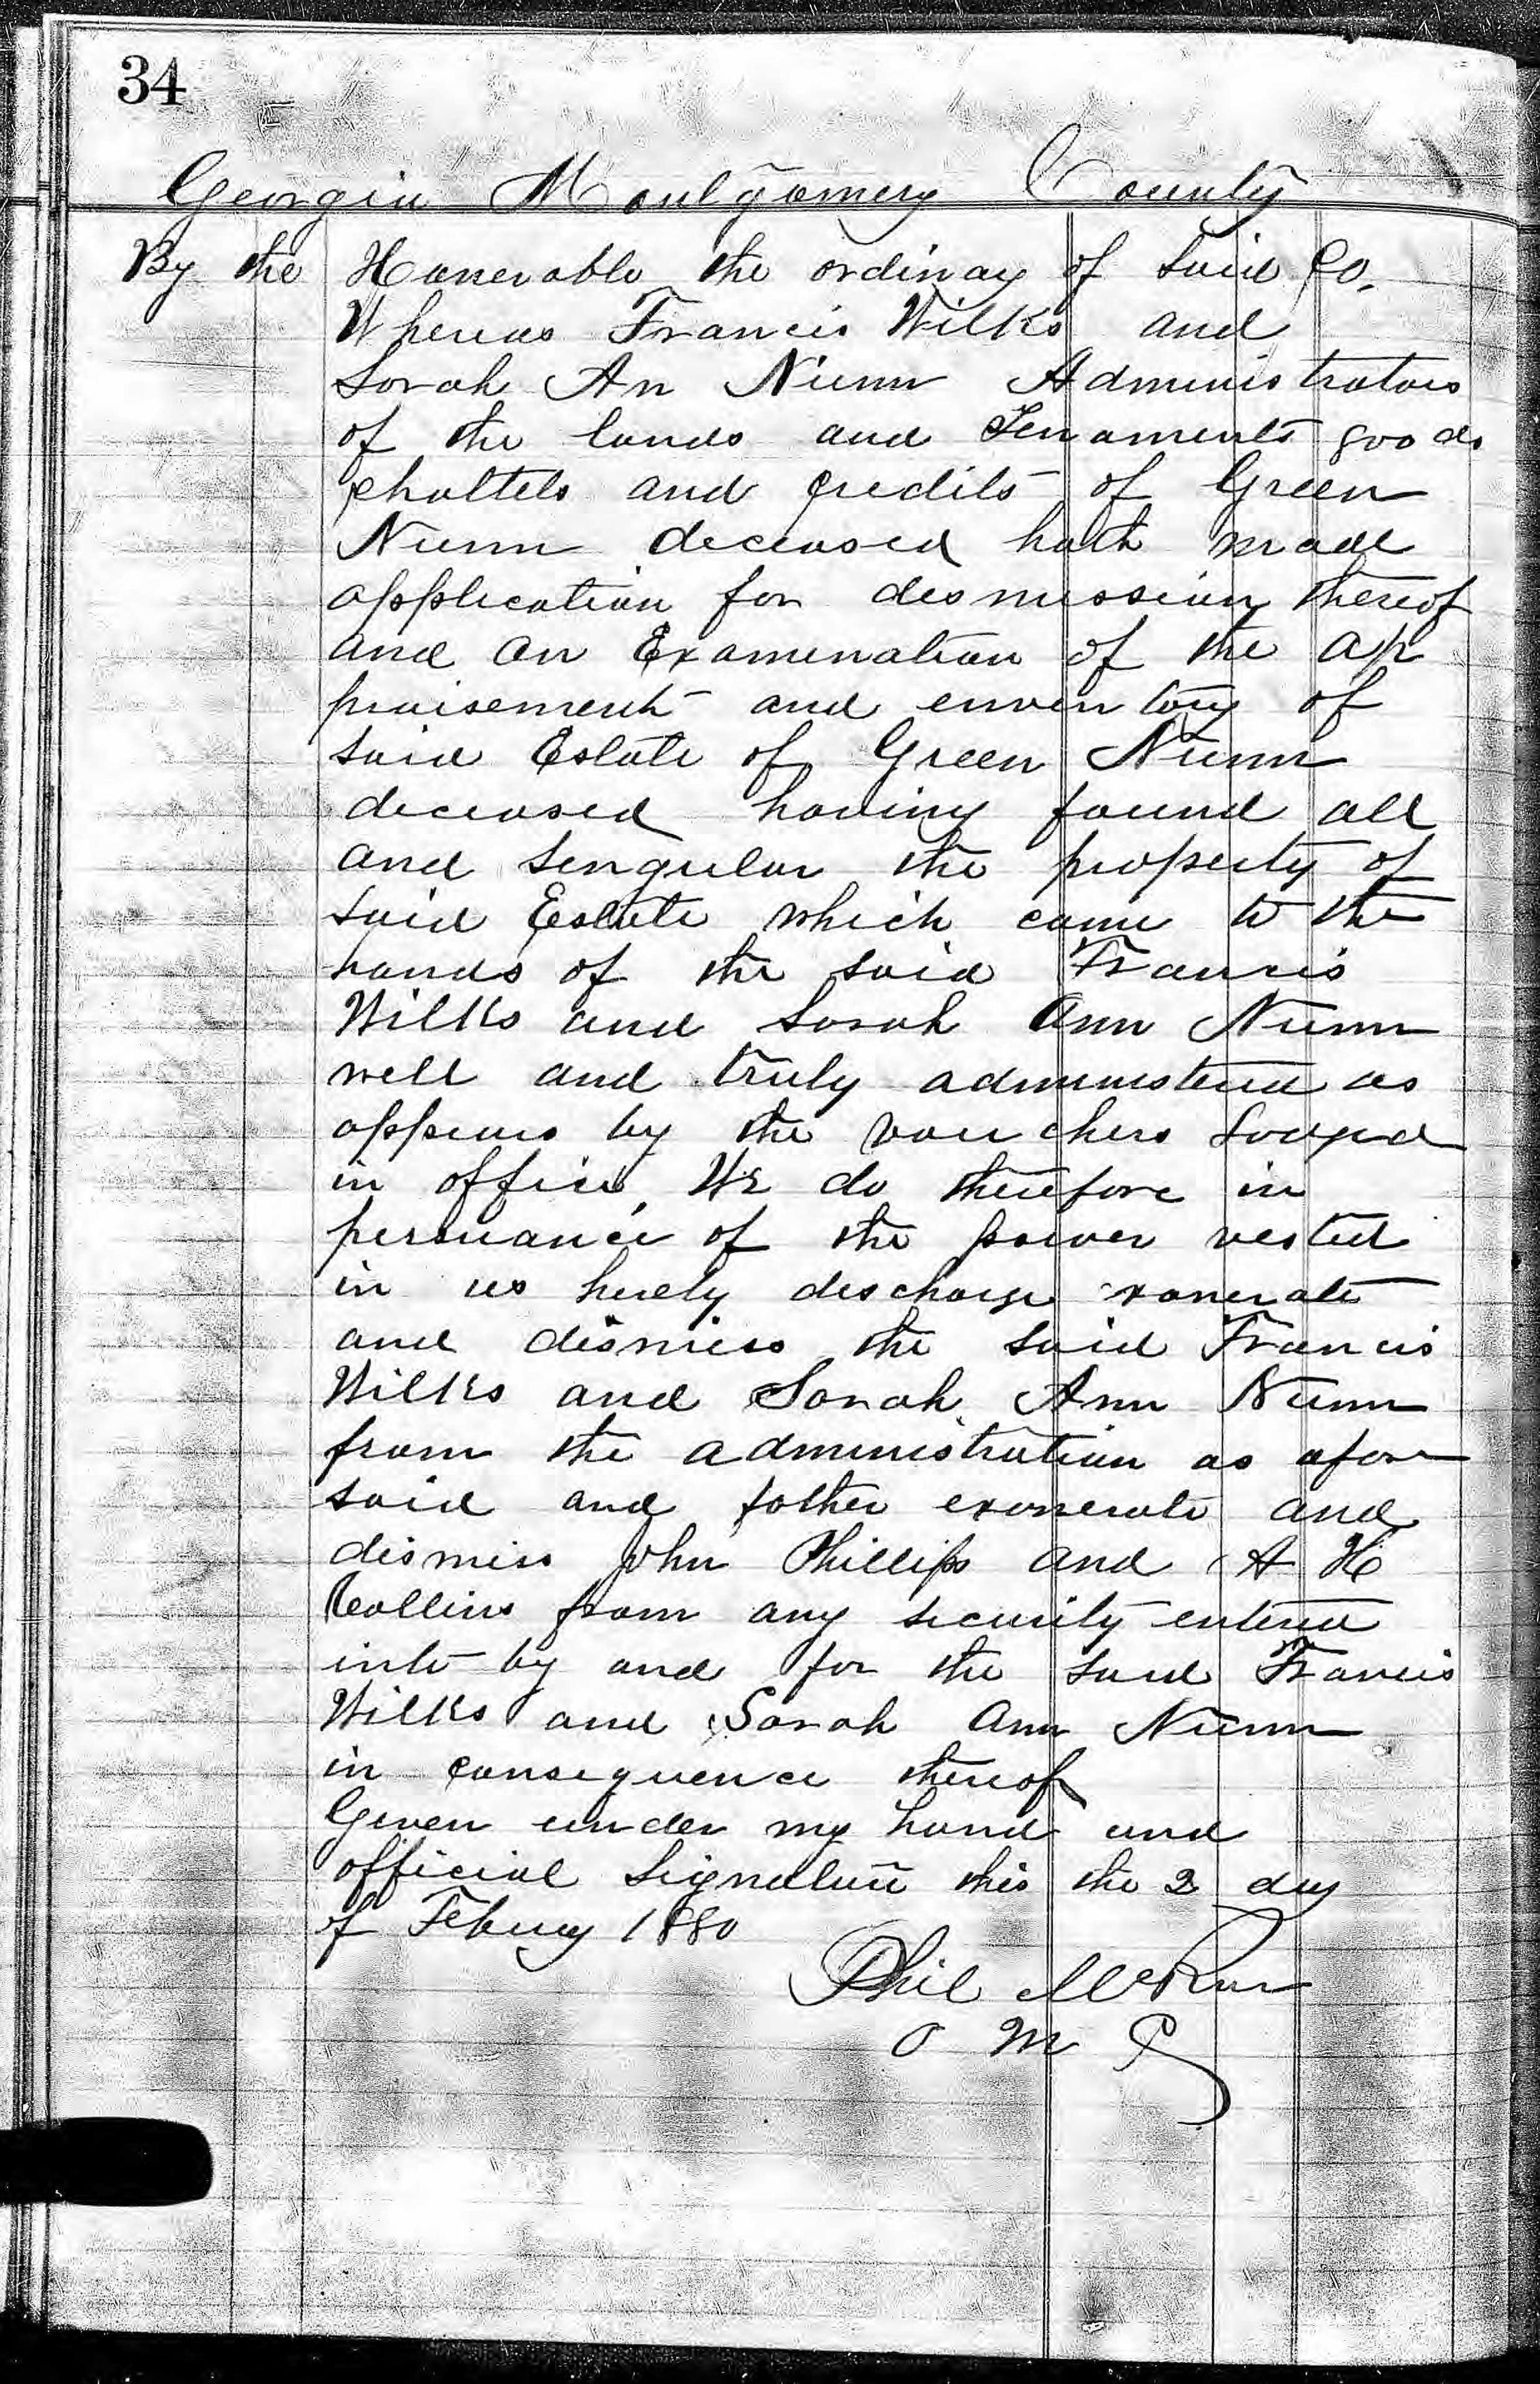 34
Georgia Montgomery County
By the Honerable the ordinay of Said Co.
Whereas Francis Wilks and
Sarah An Nunn Administrators
of the lands and Tenaments goods
chattels and credits of Green
Nunn deceased hath made
application for desmission thereof
and an Examenation of the ap
praisement and enventory of
said Estate of Green Nunn
deceased having found all
and sengular the property of
said Estate which came to the
hands of the said Francis
Wilks and Sarah Ann Nunn
well and truly administered as
appears by the vouchers
in office, We do therefore in
persuance of the power vested
in us herely descharge xonerate
and dismiss the said Francis
Wilks and Sarah Ann Nunn
from the administration as afore
said and fother exonerate and
dismiss John Phillips and A H
Collins from any security entered
into by and for the said Francis
Wilks and Sarah Ann Nunn
in consequence thereof
Given under my hand and
official Signature this the 2 day
of Febury 1880
Phil McRae
O M C